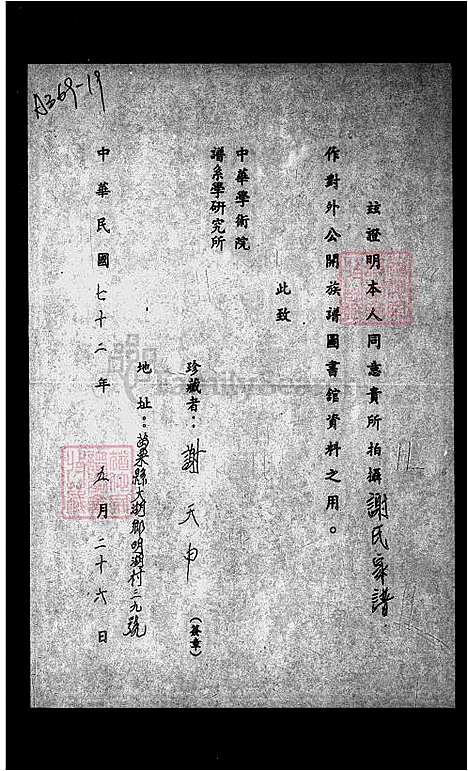 A369-19
玆證明本人同意貴所拍攝謝氏家譜
作對外公開族譜圖書館資料之用。
此致
中華學術院
譜系學研究所
珍藏者：謝天申
(簽章)
地址：苗栗縣大湖鄉明湖村三九號
中華民國七十二年五月二十六日
FamilySearch